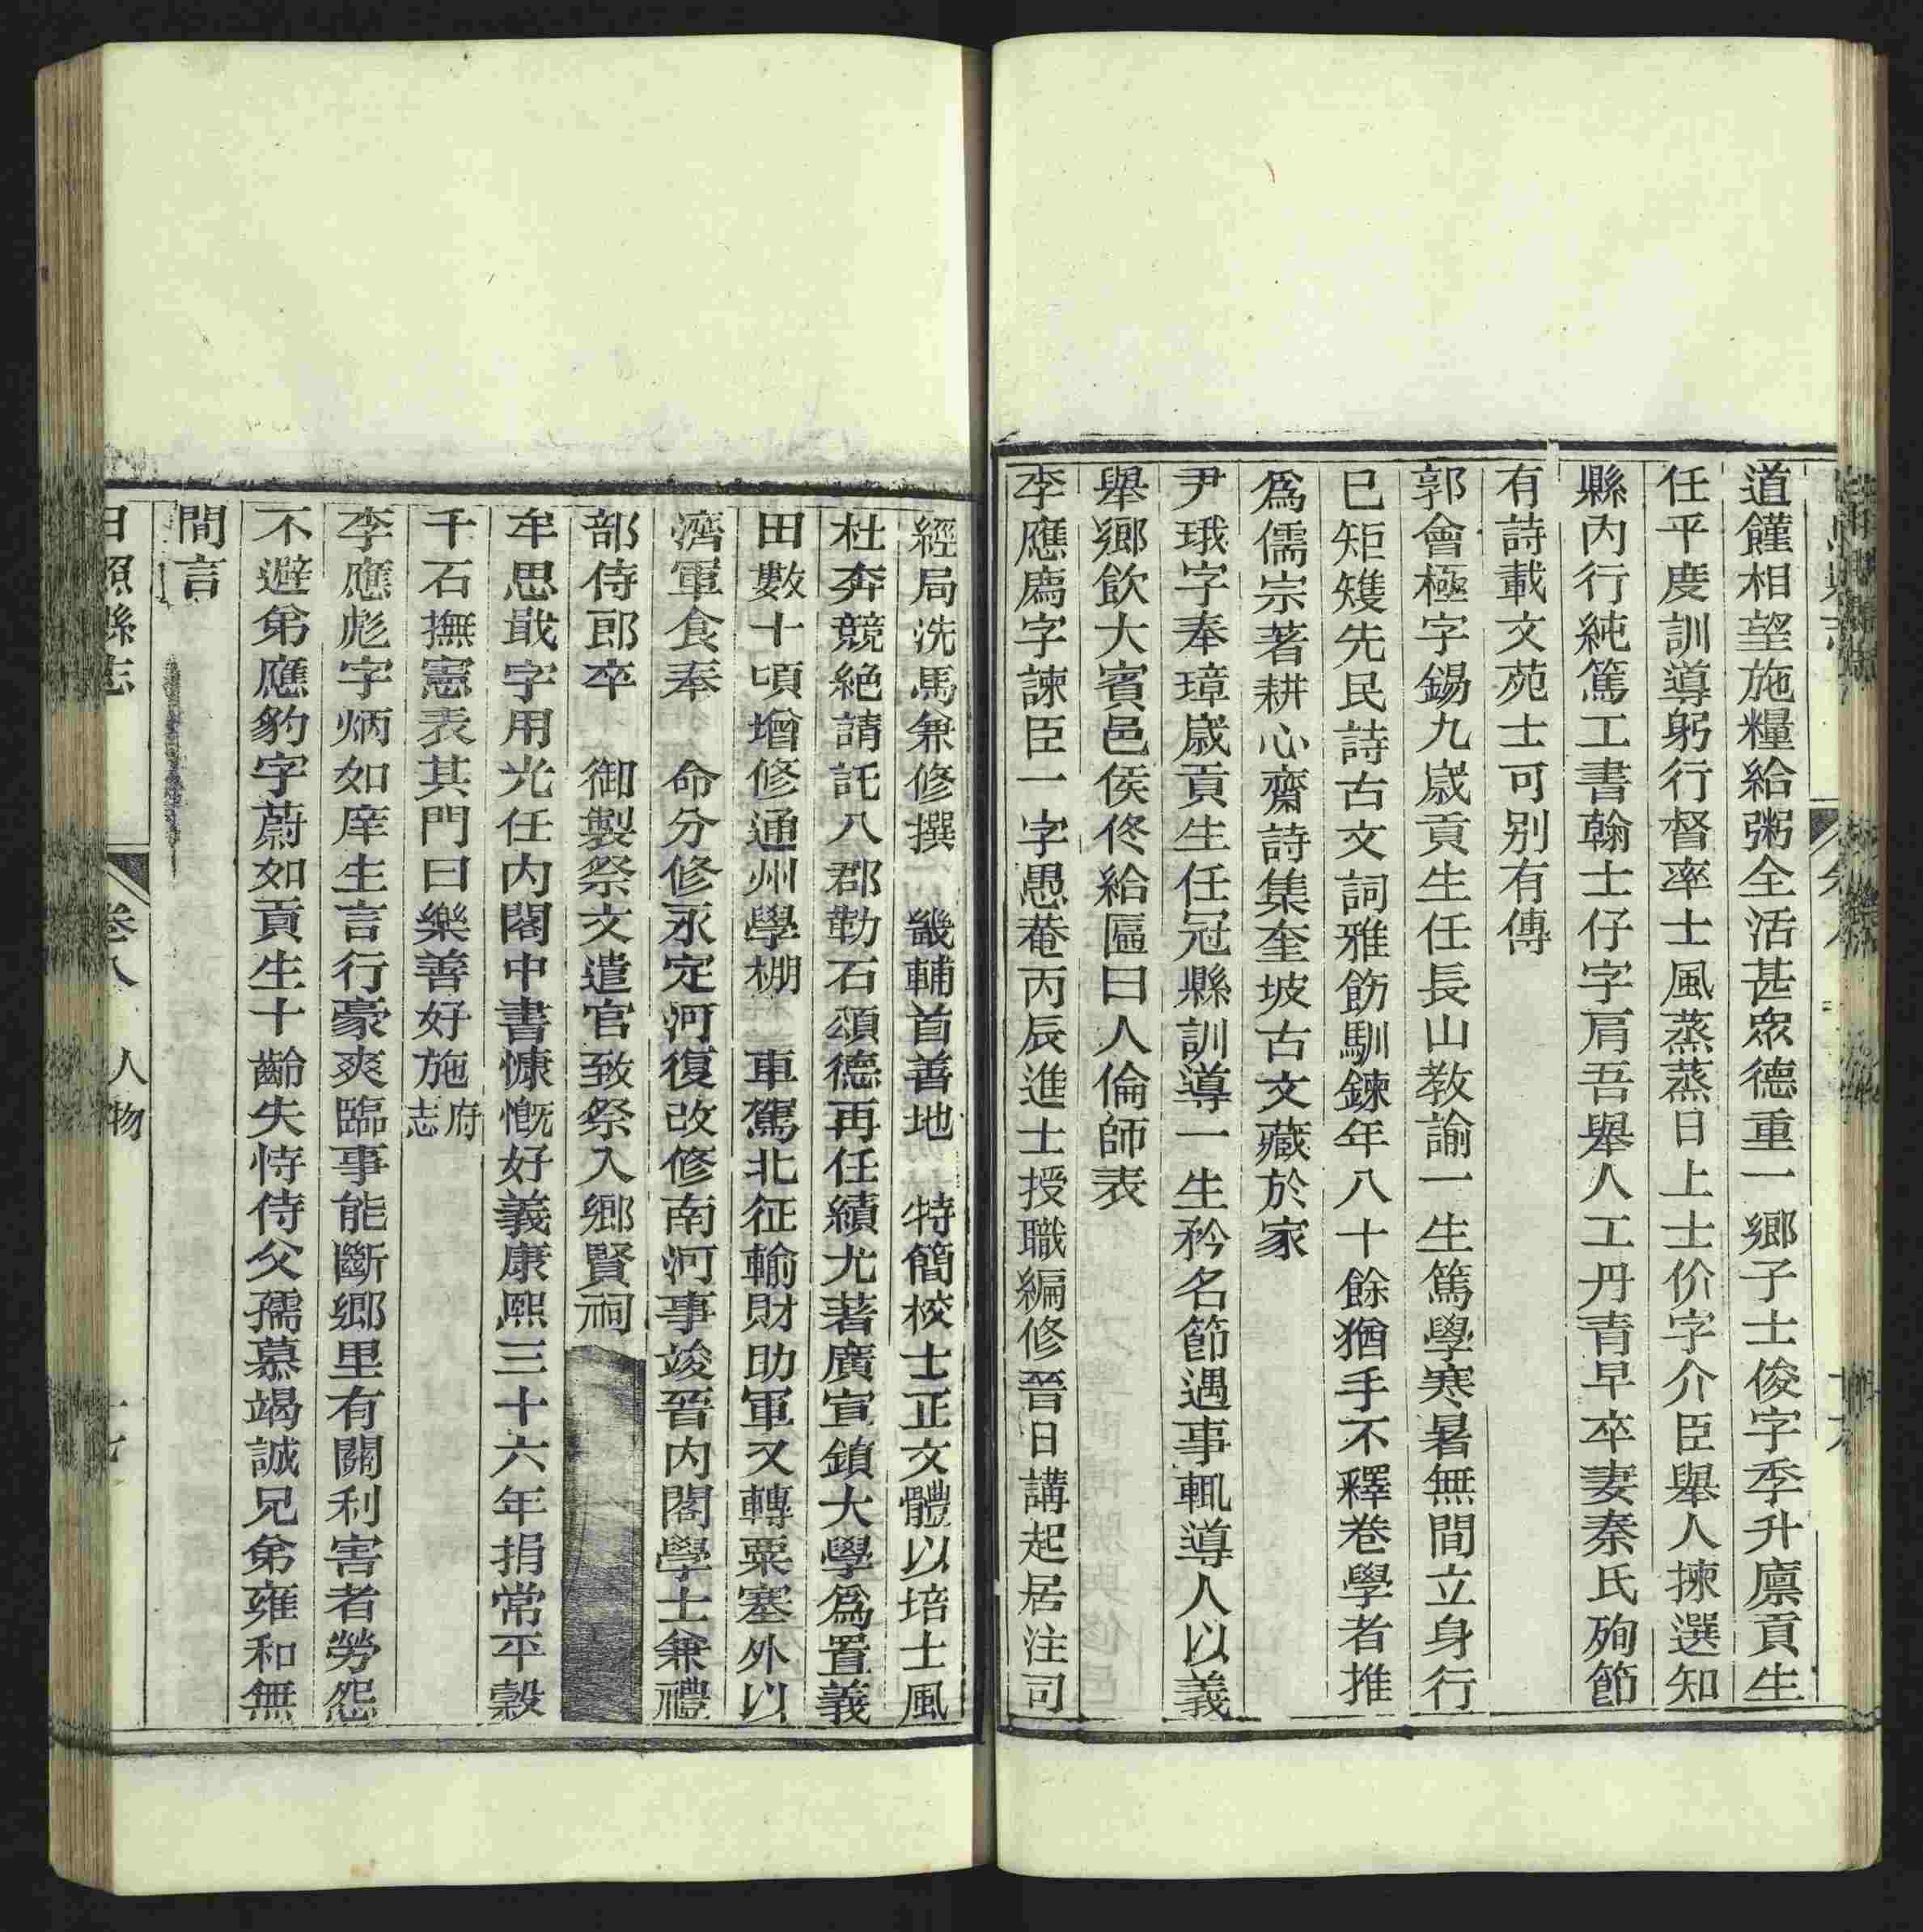 道饉相望施糧給粥全活甚眾德重一鄉子士俊字季升廪貢生
任平度訓導躬行督率士風蒸蒸日上士价字介臣舉人揀選知
縣內行純篤工書翰士仔字肩吾舉人工丹青早卒妻秦氏殉節
有詩載文苑士可别有傳
郭會極字錫九歲貢生任長山教諭一生篤學寒暑無間立身行
巳矩矱先民詩古文詞雅飭馴鍊年八十餘猶手不釋卷學者推
爲儒宗著耕心齋詩集奎坡古文藏於家
尹珴字奉璋歲貢生任冠縣訓導一生矜名節遇事輒導人以義
舉鄉飲大賓邑侯佟給匾曰人倫師表
李應廌字諫臣一字愚菴丙辰進士授職編修晉日講起居注司
經局洗馬兼修撰 畿輔首善地 特簡校士正文體以培士風
杜奔競絶請託八郡勒石頌德再任續尤著廣宣鎮大學爲置義
田數十頃增修通州學棚 車駕北征輸財助軍又轉粟塞外以
濟軍食奉 命分修永定河復改修南河事竣晉内閣學士兼禮
部侍郎卒 御製祭文遣官致祭入鄉賢祠
牟思戢字用光任内閣中書慷慨好義康熙三十六年捐常平穀
千石撫憲表其門曰樂善好施府志
李應彪字炳如庠生言行豪爽臨事能斷鄉里有關利害者勞怨
不避弟應豹字蔚如貢生十齡失恃侍父孺慕竭誠兄弟雍和無
間言
日照縣志 卷八 人物 十七